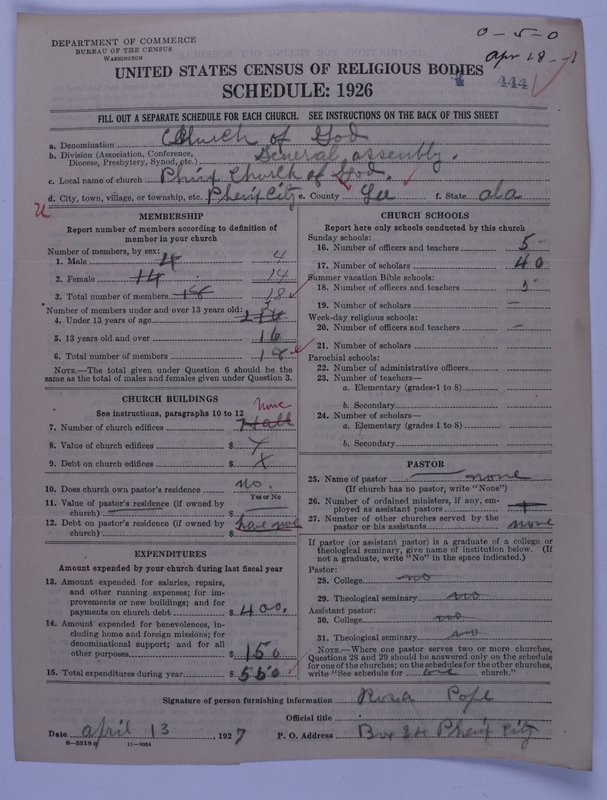 0-5-0
DEPARTMENT OF COMMERCE
BUREAU OF THE CENSUS
WASHINGTON
Apr 18
444
UNITED STATES CENSUS OF RELIGIOUS BODIES
SCHEDULE: 1926
FILL OUT A SEPARATE SCHEDULE FOR EACH CHURCH. SEE INSTRUCTIONS ON THE BACK OF THIS SHEET
a. Denomination Church of God
b. Division (Association, Conference, Diocese, Presbytery, Synod, etc.) General assembly.
c. Local name of church Phinx Church of God.
d. City, town, village, or township, etc. Phenix City e. County Lee f. State ala
MEMBERSHIP
Report number of members according to definition of
member in your church
Number of members, by sex:
1. Male 4 4
2. Female 14 14
3. Total number of members 18 18
Number of members under and over 13 years old:
4. Under 13 years of age
5. 13 years old and over 16
6. Total number of members 18
NOTE.—The total given under Question 6 should be the
same as the total of males and females given under Question 3.
CHURCH BUILDINGS
See instructions, paragraphs 10 to 12
none
7. Number of church edifices Hall
8. Value of church edifices $ X
9. Debt on church edifices $ X
10. Does church own pastor's residence no.
Yes or No
11. Value of pastor's residence (if owned by
church) $
12. Debt on pastor's residence (if owned by
church) $ have not
EXPENDITURES
Amount expended by your church during last fiscal year
13. Amount expended for salaries, repairs,
and other running expenses; for im-
provements or new buildings; and for
payments on church debt $ 400.
14. Amount expended for benevolences, in-
cluding home and foreign missions; for
denominational support; and for all
other purposes $ 150
15. Total expenditures during year $ 550
CHURCH SCHOOLS
Report here only schools conducted by this church
Sunday schools:
16. Number of officers and teachers 5
17. Number of scholars 40
Summer vacation Bible schools:
18. Number of officers and teachers 5
19. Number of scholars —
Week-day religious schools:
20. Number of officers and teachers —
21. Number of scholars
Parochial schools:
22. Number of administrative officers
23. Number of teachers—
a. Elementary (grades 1 to 8)
b. Secondary
24. Number of scholars—
a. Elementary (grades 1 to 8)
b. Secondary
PASTOR
25. Name of pastor none
(If church has no pastor, write "None")
26. Number of ordained ministers, if any, em-
ployed as assistant pastors
27. Number of other churches served by the
pastor or his assistants none
If pastor (or assistant pastor) is a graduate of a college or
theological seminary, give name of institution below. (If
not a graduate, write "No" in the space indicated.)
Pastor:
28. College no
29. Theological seminary no
Assistant pastor:
30. College no
31. Theological seminary no
NOTE.—Where one pastor serves two or more churches,
Questions 28 and 29 should be answered only on the schedule
for one of the churches; on the schedules for the other churches,
write "See schedule for one church."
Signature of person furnishing information Rosa Pope
Official title
Date april 13 1927 P. O. Address Box Phenix City
8-5318 11-9054